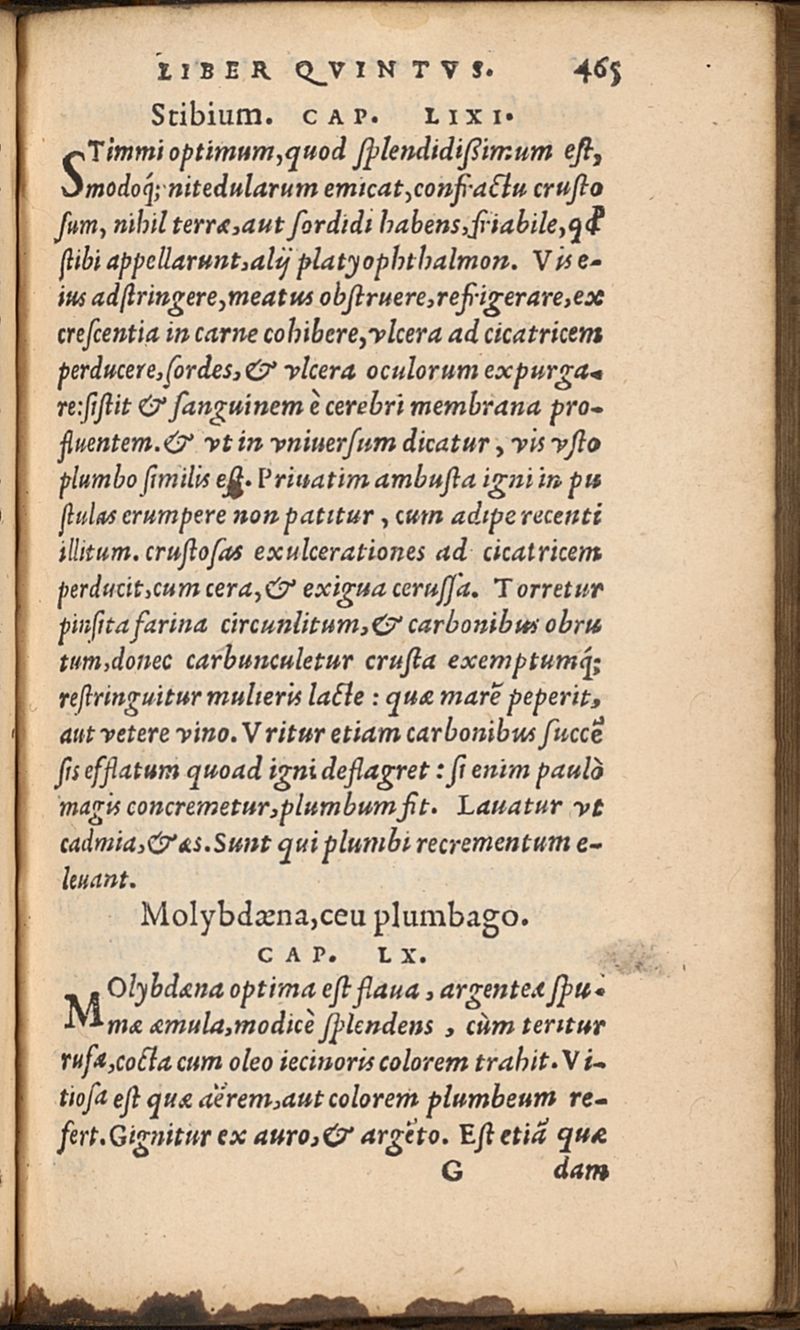 LIBER QVINTVS. 465
Stibium. CAP. LIXI.
STimmi optimum, quod ſplendidißimum eſt,
modoq́; nitedularum emicat, confractu cruſto
ſum, nihil terræ, aut ſordidi habens, friabile, qđ
ſtibi appellarunt, alij platyophthalmon. Vis e-
ius adſtringere, meatus obſtruere, refrigerare, ex
creſcentia in carne cohibere, vlcera ad cicatricem
perducere, ſordes, & vlcera oculorum expurga-
re: ſiſtit & ſanguinem è cerebri membrana pro-
fluentem. & vt in vniuerſum dicatur, vis vſto
plumbo ſimilis eſt. Priuatim ambuſta igni in pu
ſtulas erumpere non patitur, cum adipe recenti
illitum. cruſtoſas exulcerationes ad cicatricem
perducit, cum cera, & exigua ceruſſa. Torretur
pinſita farina circunlitum, & carbonibus obru
tum, donec carbunculetur cruſta exemptumq́;
reſtringuitur mulieris lacte : quæ marē peperit,
aut vetere vino. Vritur etiam carbonibus ſuccē
ſis efflatum quoad igni deflagret : ſi enim paulò
magis concremetur, plumbum fit. Lauatur vt
cadmia, & æs. Sunt qui plumbi recrementum e-
leuant.
Molybdæna, ceu plumbago.
CAP. LX.
MOlybdæna optima eſt flaua, argenteæ ſpu-
mæ æmula, modicè ſplendens, cùm teritur
rufa, cocta cum oleo iecinoris colorem trahit. Vi-
tioſa eſt quæ aërem, aut colorem plumbeum re-
fert. Gignitur ex auro, & argēto. Eſt etiā quæ
G dam